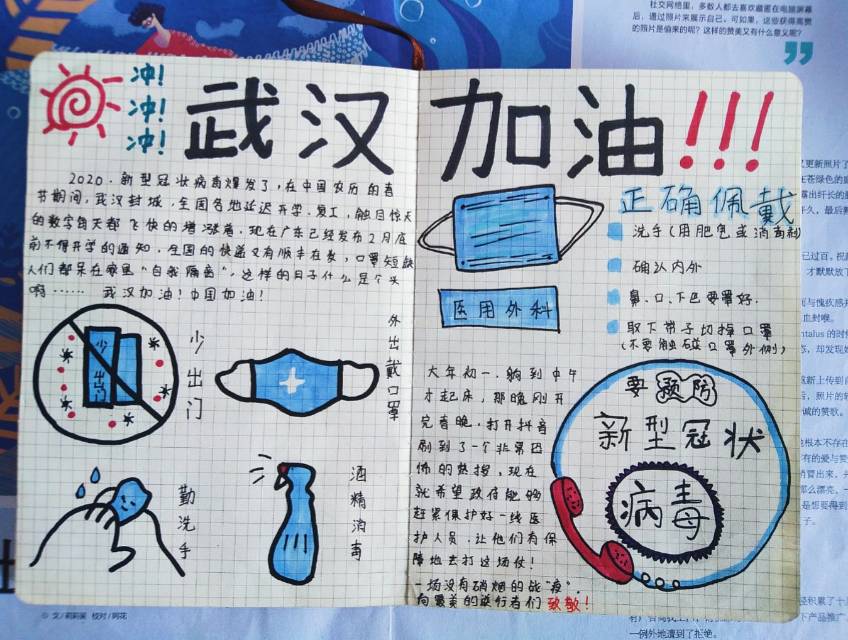 社交网络里，多数人都去喜欢藏匿在电脑屏幕
后，通过照片来展示自己。可如果，这些获得高赞
的照片是偷来的呢？这样的赞美又有什么意义呢？
冲！
冲！
冲！
武汉加油!!!
2020.新型冠状病毒爆发了，在中国农历的春
节期间，武汉封城，全国各地延迟开学，复工，触目惊天
的数字每天都飞快的增涨着，现在广东已经发布2月底
前不得开学的通知，全国的快递又有顺丰在敖，口罩短缺
人们都呆在家里“自我隔离”，这样的日子什么是个头
啊……武汉加油！中国加油！
少出门
少出门
外出戴口罩
勤洗手
酒精消毒
医用外科
正确佩戴
洗手（用肥皂或消毒剂
确认内外
鼻.口.下巴要罩好.
取下带子切掉口罩
（不要触碰口罩外侧）
大年初一，躺到中午
才起床，那晚刚开
完春晚，打开抖音
刷到了一个非常恐
怖的热搜，现在
就希望政府能够
赶紧保护好一线医
护人员，让他们有保
障地去打这场仗！
一场没有硝烟的战“疫”，
向最美的逆行者们致敬！
要预防
新型冠状
病毒
文/莉莉吴 校对/阿花
一例外地遭到了拒绝。